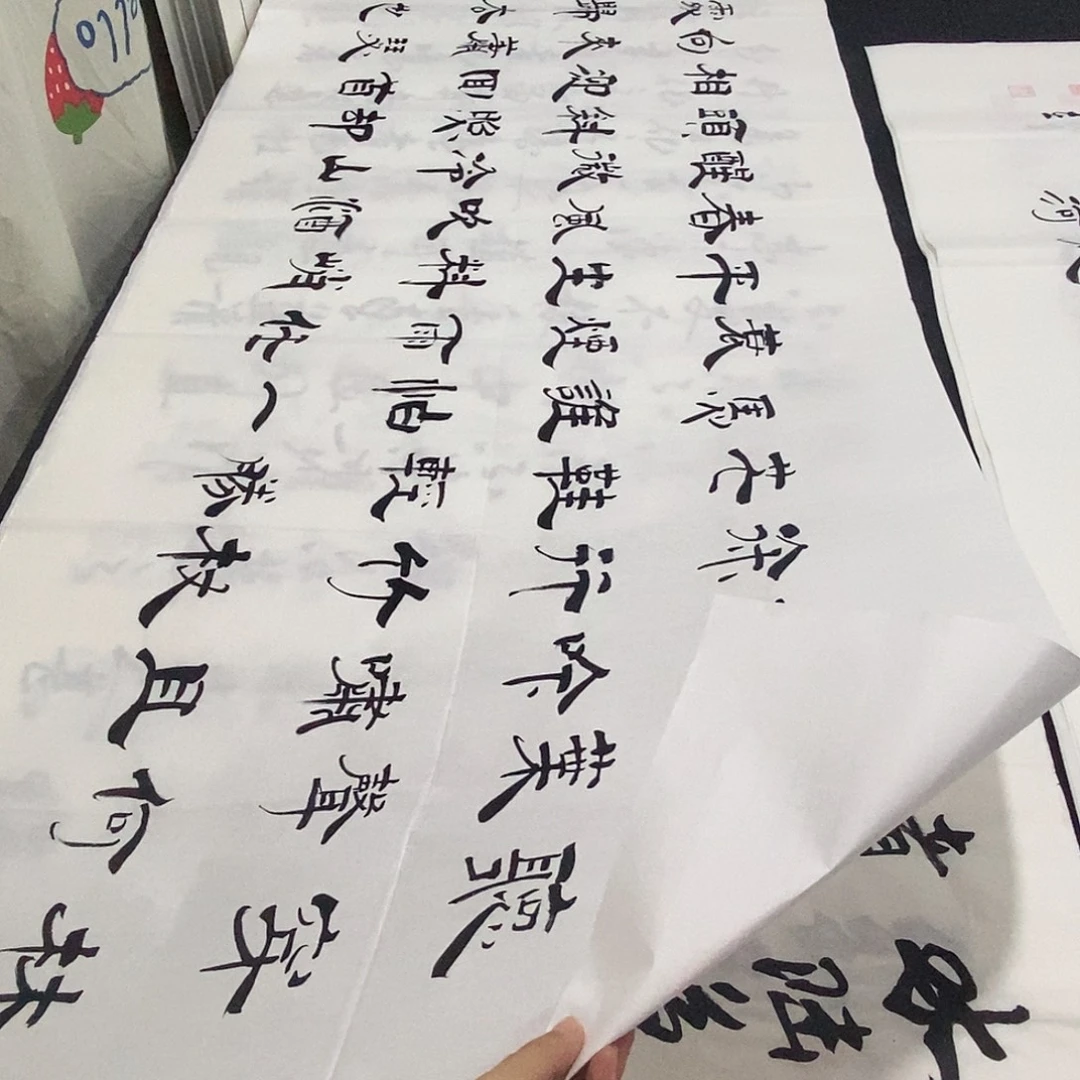 聽穿林
葉聲何
吟嘯且
徐行竹杖
芒鞋輕勝
馬誰怕一
蓑煙雨任
平生料峭
春風吹酒
醒微冷山
頭斜照却
相迎回首
向來蕭瑟
處歸去也
河